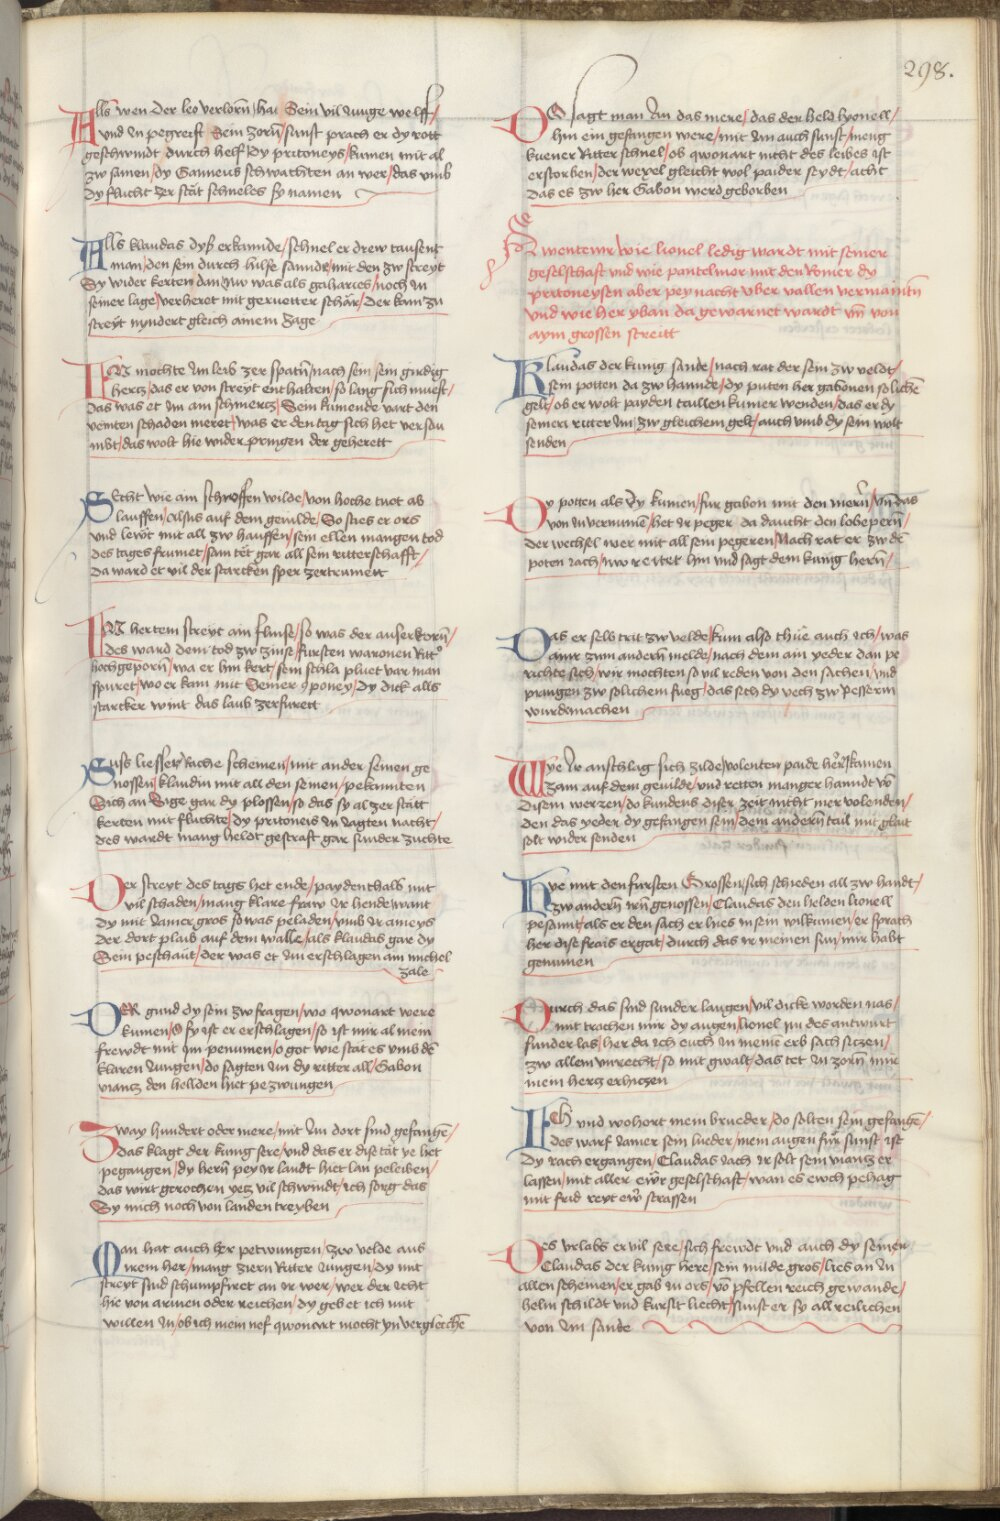 298.
Alls wen der leo verlorn hat Sein vil Junge welff/
und In pegreift Sein zorn/sunst prach er dy rott
geschwindt durch helf dy pritoneys/kumen mit al
zw samen/dy Gauneus schwachten an wer/das umb
dy flucht zer stat schneles sy namen
Alls klaudas dyß erkannde/schnel er drew tausent
man/den sein durch hilfe sannde/mit den zw streyt
Sy wider kerten dan/Nw was als gaharies/noch In
seiner lage/verheret mit geruetter schar/Der kom zu
streyt nyndert gleich ainem zage
ER mochte Im leib zer spatn/nach sein sein girdig
hertz/das er von streyt enthalten/so lang sich muest/
das was et Im ain schmertz/Sein kumende vart den
veinten schaden meret/was er den tag sich het versau
mbt/das wolt hie wider pringen der geherett
SEcht wie ain schroffen wilde/von hoche tuot ab
lauffen/Alsus auf dem gevilde/So sties er ors
und lewt mit all zw hauffen/sein ellen mangen tod
des tages frumet/sam tet gar all sein ritterschafft/
da ward et vil der starcken sper zertrumett
IN hertem streyt ain flinse/so was der auserkorn/
des ward dem tod zw zinse/fursten waronen Ritter
hochgeporn/wa er hin kert/sein schla pluet var man
spuret/wo er kam mit Seiner poney/dy dick alls
starcker wint das laub zerfurett
Suss liessen rache scheinen/mit ander seinen ge
nossen/klaudin mit all den seinen/pekannten
Sich an Sige gar dy plossen/so das sy al zer statt
kerten mit fluchte/dy pritoneis In Jagten nacht/
des wardt mang heldt gestraft gar sunder zuchte
Der streyt des tags het ende/paydenthalb mit
vil schaden/mang klare fraw Ir hende/want
dy mit Jamer gros so was peladen/umb Ir ameys
der dort plaib auf dem walle/als klaudas gar dy
Sein peschaut/der was et Im erschlagen ain michel
zale
DER gund dy sein zw fragen/wo qwonart were
kumen/O sy ist er erschlagen/so ist mir al mein
frewdt mit Im penumen/o got wie stat es umb den
klaren Jungen/do sagten Im dy ritter all/Gabon
viantz den hellden hiet pezwungen
Zway hundert oder mere/mit Im dort sind gefangen/
das klagt der kunig sere/und das er dise tat ye het
pegangen/dy hern pey Ir landt hiet lan peleiben/
das wirt gerochen yetz vil schwindt/ich sorg das
Sy mich noch von landen treyben
Man hat auch her petwungen/zw velde aus
irem her/mang ziern Ritter Jungen/dy mit
streyt sind schumpfiret an Ir wer/wer der icht
hie von armen oder reichen/dy geb et ich mit
willen In/ob ich mein nef qwonart mocht yn vergleichen
DO sagt man Im das mere/das den held lyonell/
hin ein gefangen were/mit Im auch sunst/meng
kuener Ritter schnel/ob qwonart nicht des leibes ist
erstorben/der wexel gleicht wol paider seydt/acht
das es zw her Gabon werd geborben
Awentewr wie lionel ledig wardt mit seiner
geselschaft und wie pantelmor mit den Romer dy
pritoneysen aber pey nacht vber vallen vermaintn
und wie her yban da gewarnet wardt und von
aym grossen streitt
Klaudas der kunig sande/nach rat der sein zw veldt/
sein potten da zw hannde/dy puten her gabonen solichen
gelt/ob er wolt payden taillen kumer wenden/das er dy
seinen ritter Im zw gleichem gelt/auch umb dy sein wolt
senden
Dy potten als dy kumen/fur gabon mit den mern/und das
von In vernumen/het Ir peger da daucht den lobepern/
der wechsel wer mit all sein pegeren/Nach rat er zw den
poten iach/nw reitet hin und sagt dem kunig hern/
Das er selb trit zw velde/kum also thue auch ich/was
ainr zum andern melde/nach dem ain yeder dan pe
richte sich/wir mochten so vil reden von den sachen/und
prangen zw solichem fueg/das sich dy vech zw pessern
wurd machen
Wye Ir anschlag sich zilde/volenten paide herrn/kamen
zam auf dem gevilde/und retten manger hanndt von
disem werzen/do kundens diser zeit nicht mer volenden/
den das yeder dy gefangen sein/dem andern tail mit glait
solt wider senden
Hye mit den fursten Grossen/sich schieden all zw handt/
zw andern irn genossen/Claudas den helden lionell
pesamt/als er den sach er hies in sein wilkumen/er sprach
her dise frais ergat/durch das ir meinen sun/mir habt
genumen
Durch das sind sunder laugen/vil dicke worden nas/
mit trachen mir dy augen/lionel im des antwurt
sunder las/her da ich euch In meinem erb sach sitzen/
zw allem unrecht/so mit gwalt/das tet In zorn mir
mein hertz erhitzen
ICh und wohort mein brueder/do solten sein gefangen/
des warf Jamer sein lueder/mein augen fur sunst ist
dy rach ergangen/Claudas iach Ir solt sein viantz er
lassen/mit aller ewr geselschaft/wan es ewch pehag
mit frid reyt ewr strassen
Des urlabs er vil sere/sich frewdt und auch dy seinen
Claudas der kunig here/sein milde gros/lies an In
allen scheinen/er gab In ors/von pfellen reich gewande/
helm schildt und kursit liecht/sunst er sy all reilichen
von Im sande